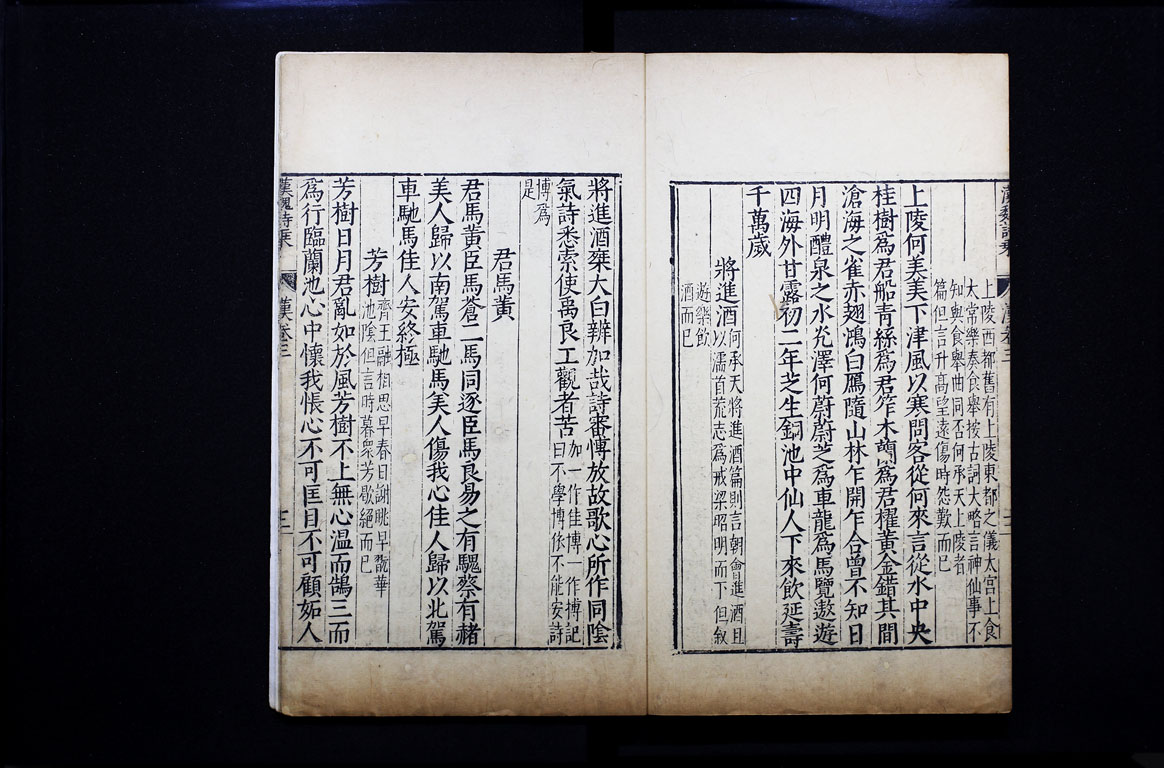 上陵西都舊有上陵東都之儀太宮上食
太常樂奏食舉按古詞大略言神仙事不
知與食舉曲同否何承天上陵者
篇但言升高望遠傷時怨歎而已
上陵何美美下津風以寒問客從何來言從水中央
桂樹爲君船青絲爲君笮木蘭爲君櫂黃金錯其間
滄海之雀赤翅鴻白鴈隨山林乍開乍合曾不知日
月明醴泉之水光澤何蔚蔚芝爲車龍爲馬覽遨遊
四海外甘露初二年芝生銅池中仙人下來飲延壽
千萬歲
將進酒 何承天將進酒篇則言朝會進酒且
以濡首荒志爲戒梁昭明而下但敘
遊樂飲
酒而已
將進酒乘大白辨加哉詩審博放故歌心所作同陰
氣詩悉索使禹良工觀者苦 加一作佳博一作搏記
曰不學博依不能安詩
博爲
是
君馬黃
君馬黃臣馬蒼二馬同逐臣馬良易之有騩蔡有赭
美人歸以南駕車馳馬美人傷我心佳人歸以北駕
車馳馬佳人安終極
芳樹 齊王融相思早春日謝朓早翫華
池陰但言時暮衆芳歇絕而已
芳樹日月君亂如於風芳樹不上無心温而鵠三而
爲行臨蘭池心中懷我悵心不可匡目不可顧妬人
漢魏詩乘 漢卷三